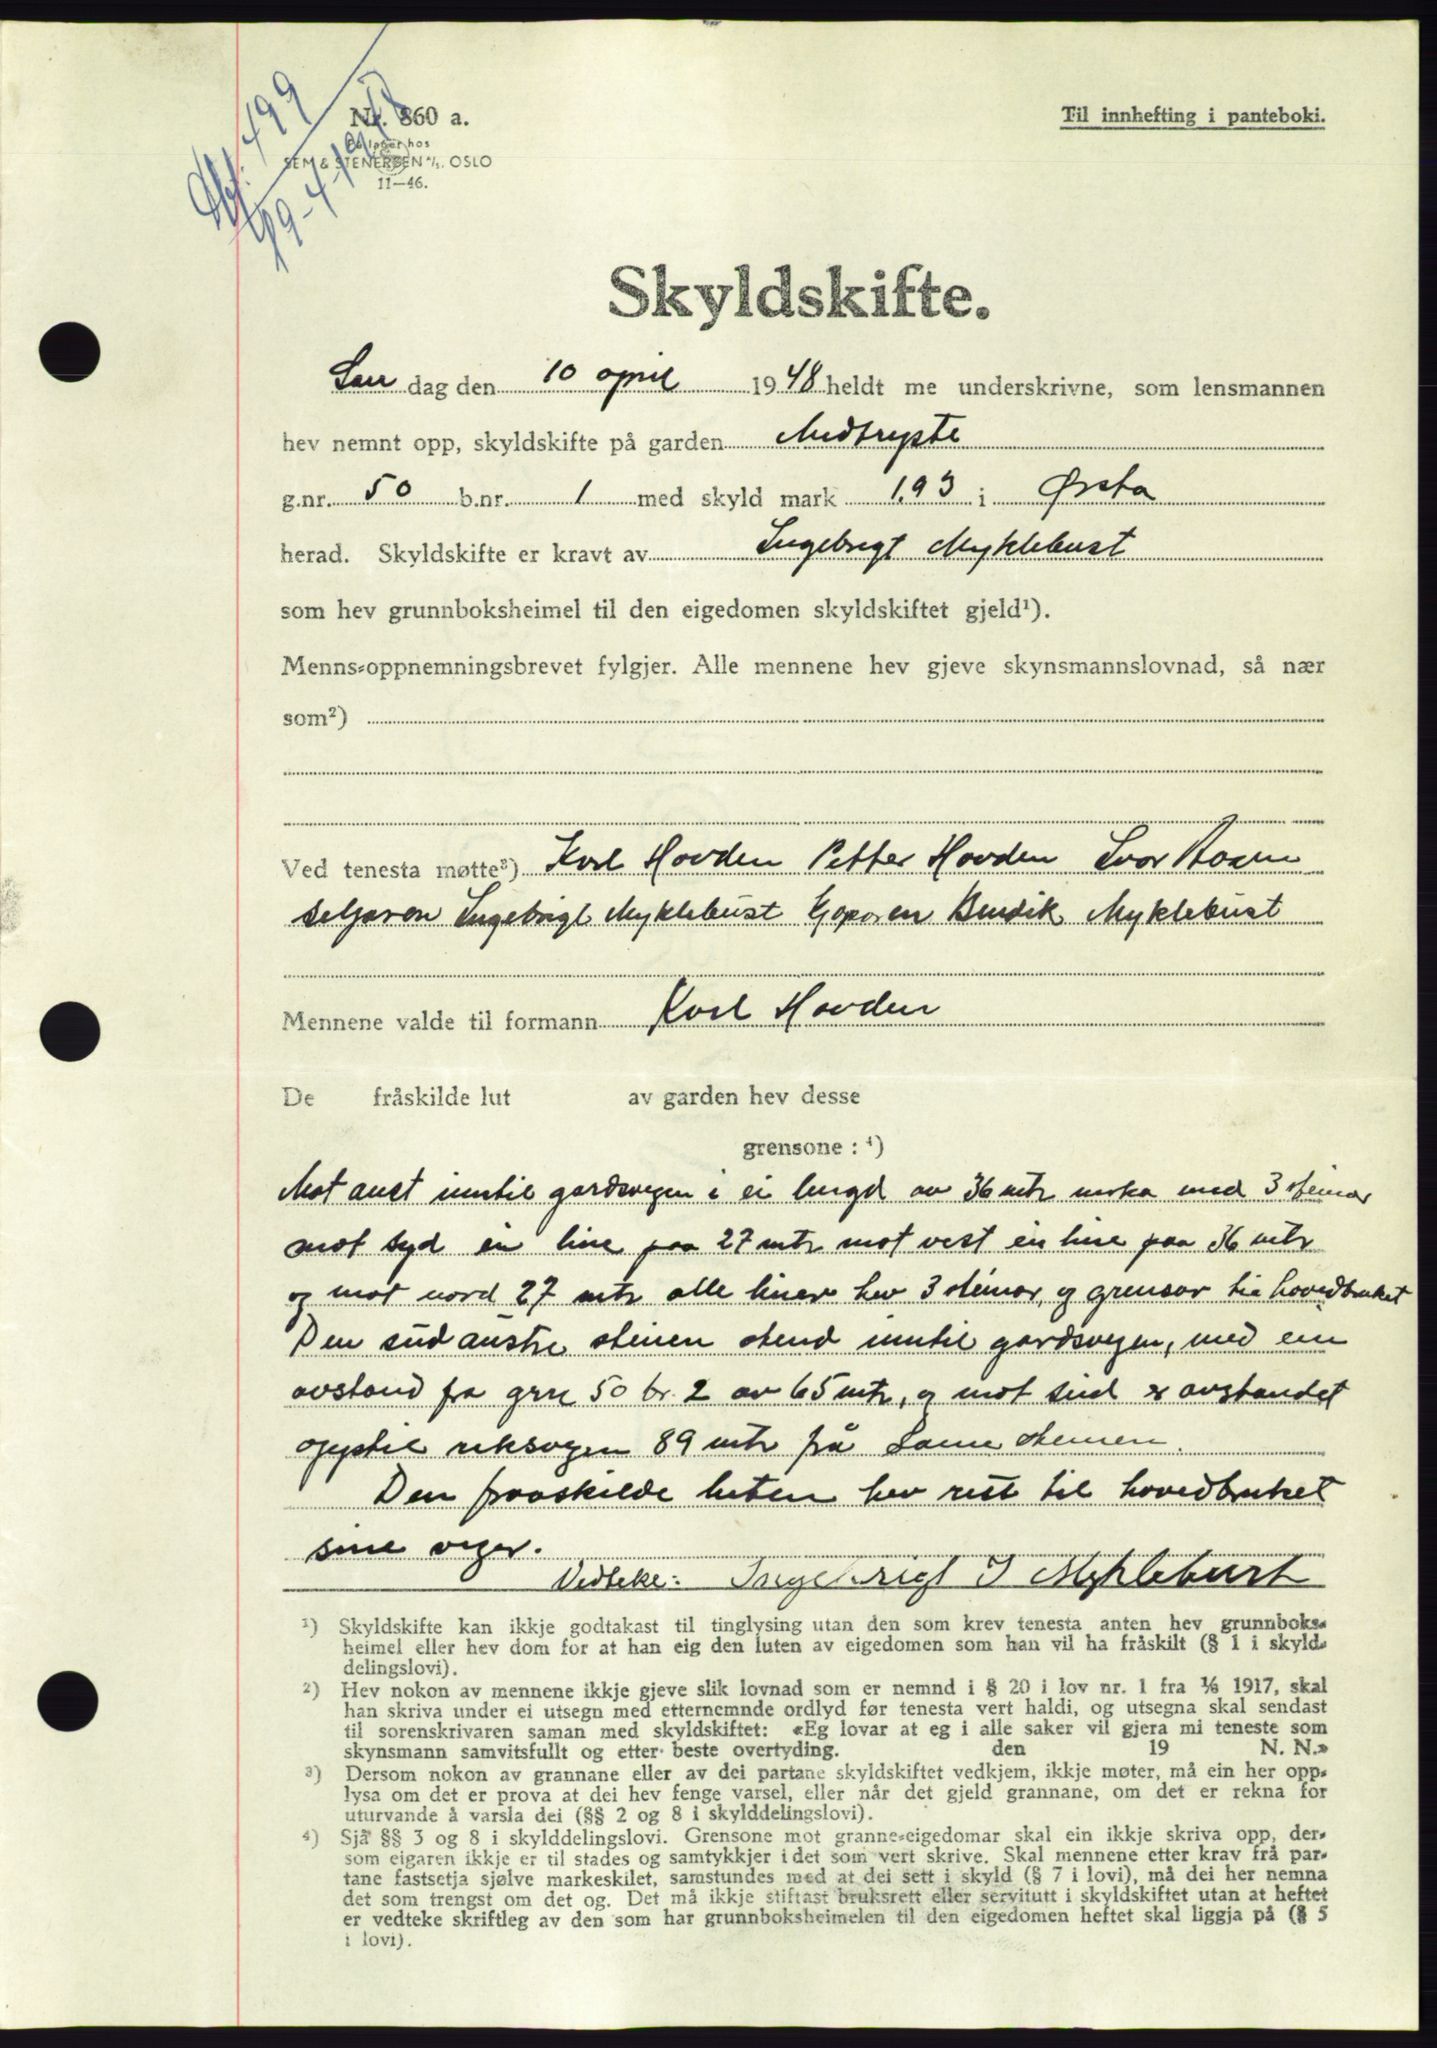 Dbf. 499
19-4-1948
Nr. 860 a.
På lager hos
SEM & STENERSEN A/S. OSLO
11—46.
Til innhefting i panteboki.
Skyldskifte.
Lau dag den 10 april 1948 heldt me underskrivne, som lensmannen
hev nemnt opp, skyldskifte på garden Medtryste
g.nr. 50 b.nr. 1 med skyld mark 1,93 i Ørsta
herad. Skyldskifte er kravt av Ingebrigt Myklebust
som hev grunnboksheimel til den eigedomen skyldskiftet gjeld¹).
Menns-oppnemningsbrevet fylgjer. Alle mennene hev gjeve skynsmannslovnad, så nær
som²)
Ved tenesta møtte³) Karl Hovden Petter Hovden Ivar Aasen
seljaren Ingebrigt Myklebust kjøparen Bendik Myklebust
Mennene valde til formann Karl Hovden
De fråskilde lut av garden hev desse
grensone : ⁴)
Mot aust inntil gardsvegen i ei lengd av 36 mtr merka med 3 steinar
mot syd ein line paa 27 mtr mot vest ein line paa 36 mtr
og mot nord 27 mtr alle liner hev 3 steinar, og grensar til hovedbruket
Den sud austre steinen stend inntil gardsvegen, med ein
avstand fra grn 50 br. 2 av 65 mtr, og mot sud er avstandet
opptil riksvegen 89 mtr frå same steinen.
Den fraaskilde luten hev rett til hovedbruket
sine veger.
Vedteke: Ingebrigt I Myklebust
¹) Skyldskifte kan ikkje godtakast til tinglysing utan den som krev tenesta anten hev grunnboks-
heimel eller hev dom for at han eig den luten av eigedomen som han vil ha fråskilt (§ 1 i skyld-
delingslovi).
²) Hev nokon av mennene ikkje gjeve slik lovnad som er nemnd i § 20 i lov nr. 1 fra 1/6 1917, skal
han skriva under ei utsegn med etternemnde ordlyd før tenesta vert haldi, og utsegna skal sendast
til sorenskrivaren saman med skyldskiftet: «Eg lovar at eg i alle saker vil gjera mi teneste som
skynsmann samvitsfullt og etter beste overtyding. den 19 N. N.»
³) Dersom nokon av grannane eller av dei partane skyldskiftet vedkjem, ikkje møter, må ein her opp-
lysa om det er prova at dei hev fenge varsel, eller når det gjeld grannane, om det er rekna for
uturvande å varsla dei (§§ 2 og 8 i skylddelingslovi).
⁴) Sjå §§ 3 og 8 i skylddelingslovi. Grensone mot granne-eigedomar skal ein ikkje skriva opp, der-
som eigaren ikkje er til stades og samtykkjer i det som vert skrive. Skal mennene etter krav frå par-
tane fastsetja sjølve markeskilet, samstundes med at dei sett i skyld (§ 7 i lovi), må dei her nemna
det som trengst om det og. Det må ikkje stiftast bruksrett eller servitutt i skyldskiftet utan at heftet
er vedteke skriftleg av den som har grunnboksheimelen til den eigedomen heftet skal liggja på (§ 5
i lovi).